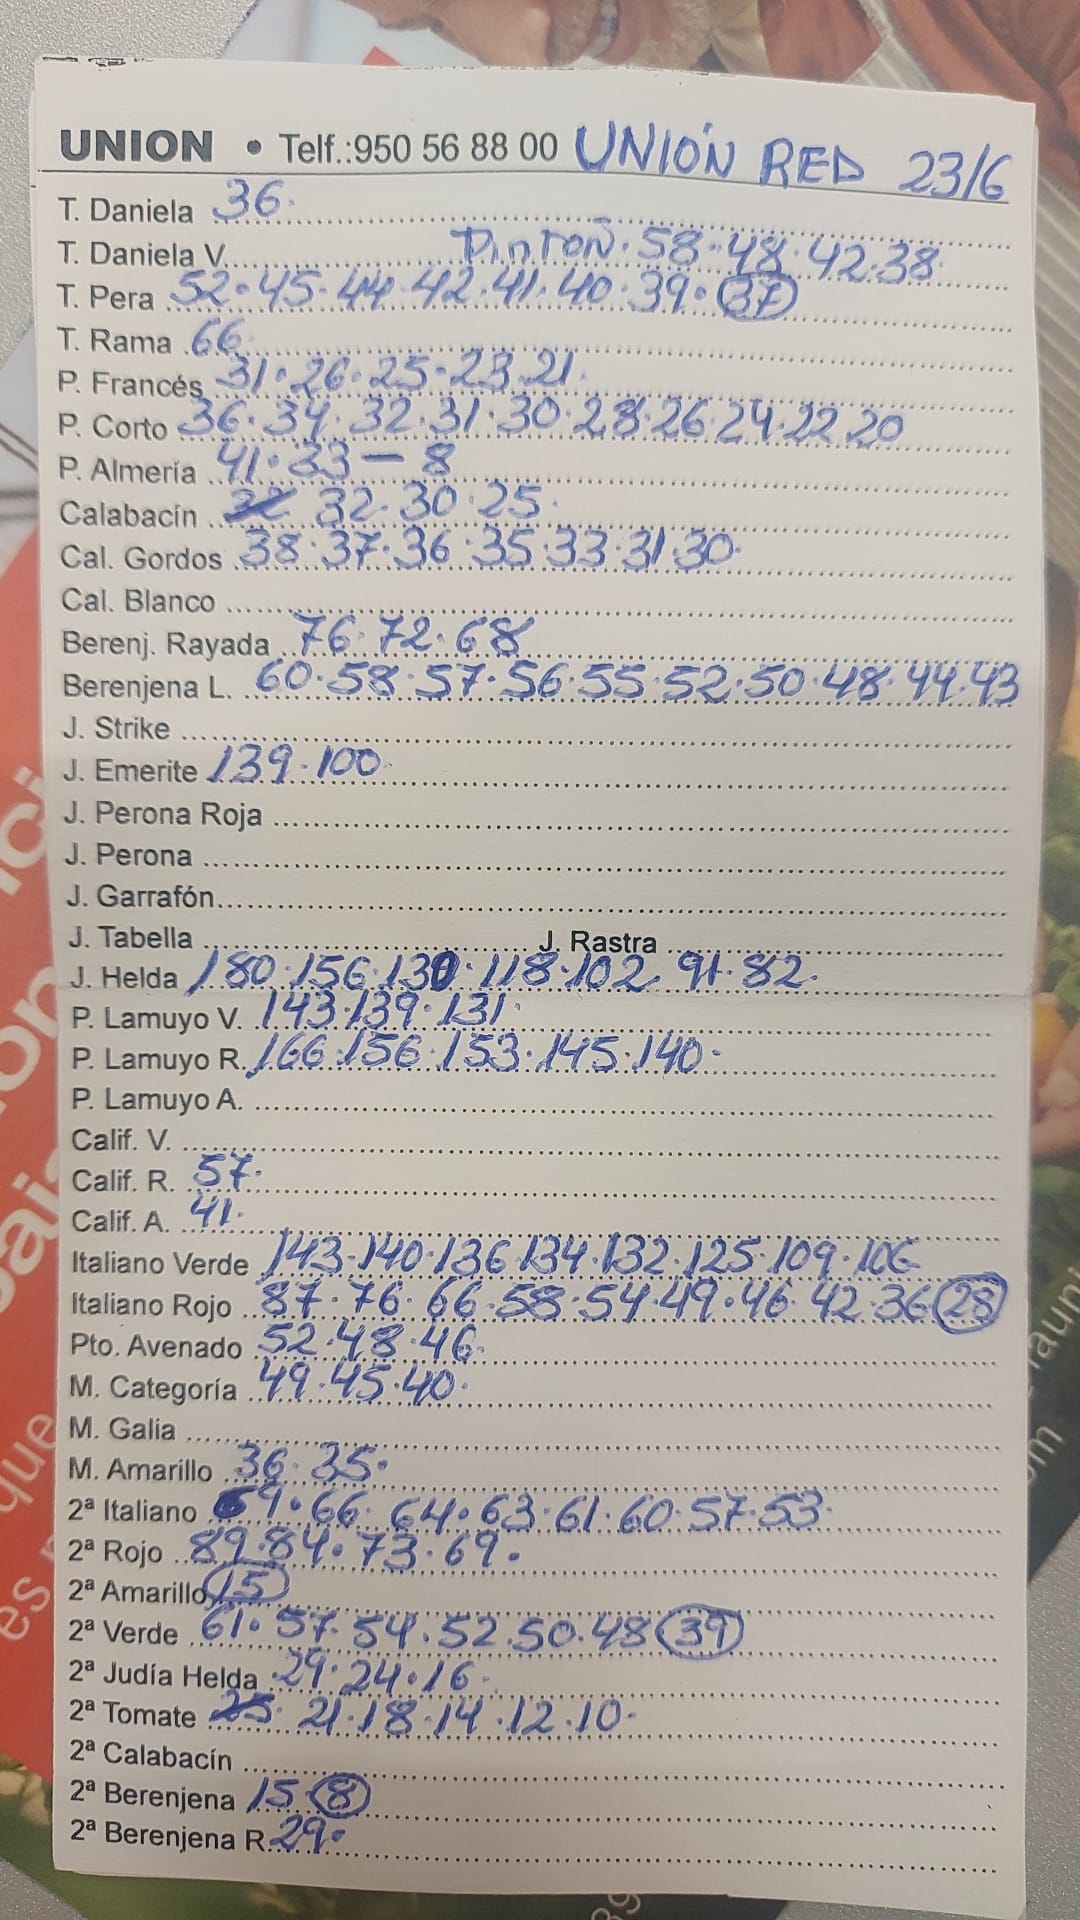 UNION • Telf.:950 56 88 00 UNIÓN RED 23/6
T. Daniela 36.
T. Daniela V. PINTOÑ. 58. 48. 42. 38.
T. Pera 52. 45. 44 42. 41. 40. 39. 37
T. Rama 66
P. Francés 31. 26. 25. 23. 21.
P. Corto 36. 34. 32. 31. 30. 28. 26. 24. 22. 20
P. Almería 41. 33 — 8
Calabacín 32. 30. 25.
Cal. Gordos 38. 37. 36. 35. 33. 31. 30.
Cal. Blanco
Berenj. Rayada 76. 72. 68
Berenjena L. 60. 58. 57. 56. 55. 52. 50. 48. 44. 43
J. Strike
J. Emerite 139. 100.
J. Perona Roja
J. Perona
J. Garrafón
J. Tabella J. Rastra
J. Helda 180. 156. 130. 118. 102. 91. 82.
P. Lamuyo V. 143. 139. 131.
P. Lamuyo R. 166. 156. 153. 145. 140.
P. Lamuyo A.
Calif. V.
Calif. R. 57.
Calif. A. 41.
Italiano Verde 143. 140. 136. 134. 132. 125. 109. 106
Italiano Rojo 87. 76. 66. 58. 54. 49. 46. 42. 36 28
Pto. Avenado 52. 48. 46.
M. Categoría 49. 45. 40.
M. Galia
M. Amarillo 36. 35.
2ª Italiano 69. 66. 64. 63. 61. 60. 57. 53.
2ª Rojo 89. 84. 73. 69.
2ª Amarillo 15
2ª Verde 61. 57. 54. 52. 50. 48 39
2ª Judía Helda 29. 24. 16.
2ª Tomate 25. 21. 18. 14. 12. 10.
2ª Calabacín
2ª Berenjena 15 8
2ª Berenjena R. 29.